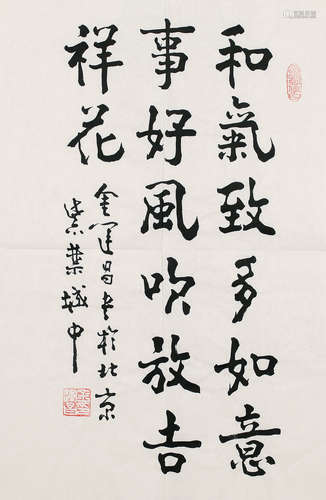 和氣致多如意
事好風吹放吉
祥花
金運昌書於北京
紫禁城中